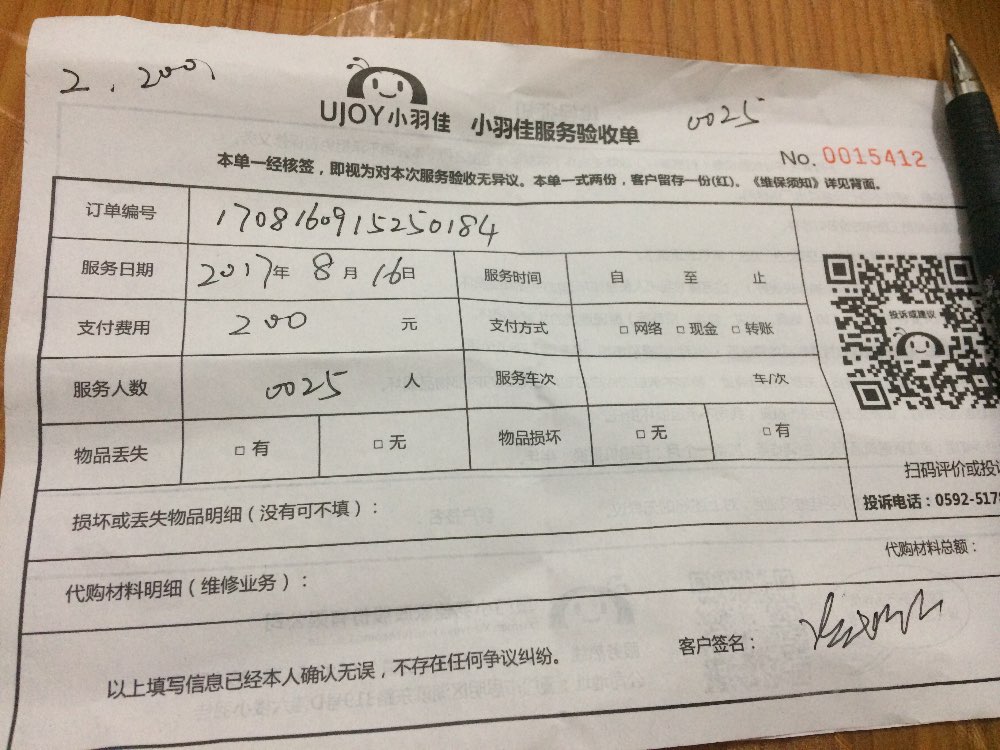 2. 200
UJOY小羽佳 小羽佳服务验收单 0025
No. 0015412
本单一经核签，即视为对本次服务验收无异议。本单一式两份，客户留存一份(红)。《维保须知》详见背面。
订单编号 1708160915250184
服务日期 2017年 8月 16日 服务时间 自 至 止
支付费用 200 元 支付方式 □ 网络 □ 现金 □ 转账
投诉或建议
服务人数 0025 人 服务车次 车/次
物品丢失 □ 有 □ 无 物品损坏 □ 无 □ 有
扫码评价或投
投诉电话：0592-517
损坏或丢失物品明细（没有可不填）：
代购材料明细（维修业务）： 代购材料总额：
以上填写信息已经本人确认无误，不存在任何争议纠纷。 客户签名：